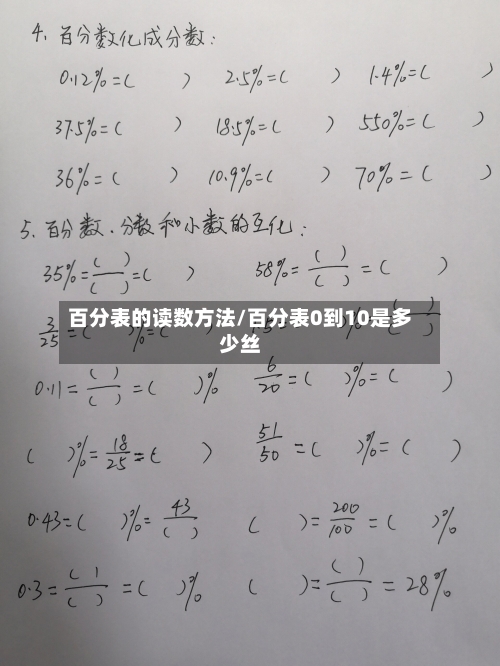 4. 百分数化成分数:
0.12%=(  )  2.5%=(  )  1.4%=(  )
37.5%=(  )  18.5%=(  )  550%=(  )
36%=(  )  10.9%=(  )  70%=(  )
5. 百分数、分数和小数的互化:
35%=(  )/(  )=(  )  58%=(  )/(  )=(  )
百分表的读数方法/百分表0到10是多
少丝
3/25
0.11=(  )/(  )=(  )%  6/20=(  )%=(  )
(  )%=18/25=(  )  51/50=(  )%=(  )
0.43=(  )%=43/(  )  (  )=200/100=(  )%
0.3=(  )/(  )=(  )%  (  )=(  )/(  )=28%